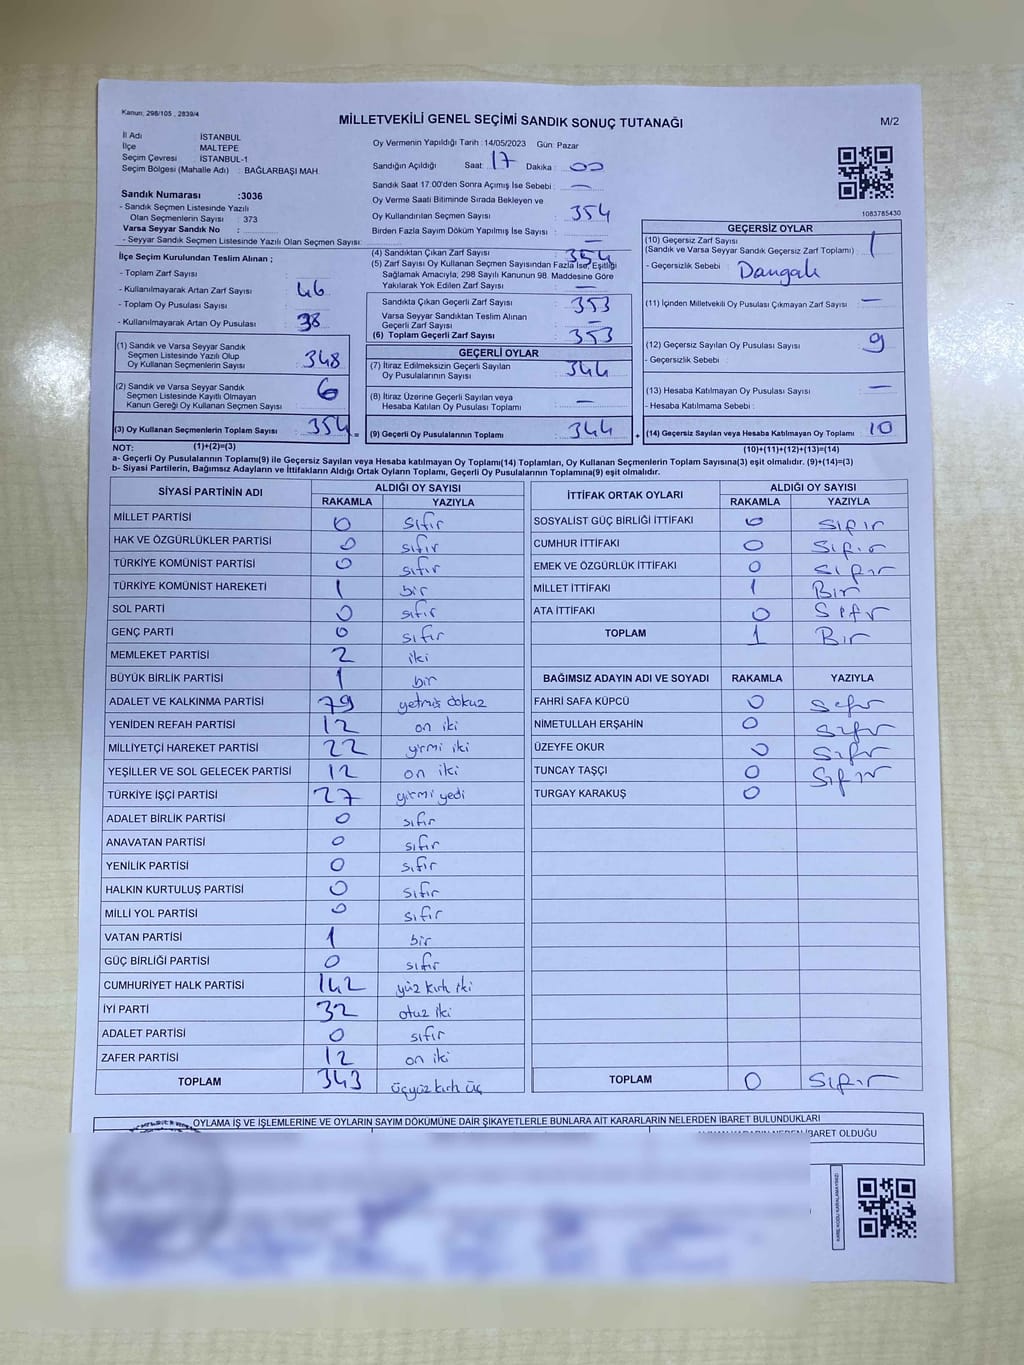 Kanun: 298/105 , 2839/4
MİLLETVEKİLİ GENEL SEÇİMİ SANDIK SONUÇ TUTANAĞI
M/2
İl Adı İSTANBUL
İlçe MALTEPE
Seçim Çevresi : İSTANBUL-1
Seçim Bölgesi (Mahalle Adı) : BAĞLARBAŞI MAH.
Sandık Numarası :3036
- Sandık Seçmen Listesinde Yazılı
Olan Seçmenlerin Sayısı : 373
Varsa Seyyar Sandık No :
- Seyyar Sandık Seçmen Listesinde Yazılı Olan Seçmen Sayısı:
Oy Vermenin Yapıldığı Tarih :14/05/2023 Gün: Pazar
Sandığın Açıldığı Saat: 17 Dakika : 00
Sandık Saat 17:00'den Sonra Açımış İse Sebebi : —
Oy Verme Saati Bitiminde Sırada Bekleyen ve
Oy Kullandırılan Seçmen Sayısı : 354
Birden Fazla Sayım Döküm Yapılmış İse Sayısı : —
1083785430
İlçe Seçim Kurulundan Teslim Alınan ;
- Toplam Zarf Sayısı :
- Kullanılmayarak Artan Zarf Sayısı : 46
- Toplam Oy Pusulası Sayısı :
- Kullanılmayarak Artan Oy Pusulası : 38
(1) Sandık ve Varsa Seyyar Sandık
Seçmen Listesinde Yazılı Olup
Oy Kullanan Seçmenlerin Sayısı : 348
(2) Sandık ve Varsa Seyyar Sandık
Seçmen Listesinde Kayıtlı Olmayan
Kanun Gereği Oy Kullanan Seçmen Sayısı : 6
(3) Oy Kullanan Seçmenlerin Toplam Sayısı : 354 =
(4) Sandıktan Çıkan Zarf Sayısı : 354
(5) Zarf Sayısı Oy Kullanan Seçmen Sayısından Fazla İse, Eşitliği
Sağlamak Amacıyla; 298 Sayılı Kanunun 98. Maddesine Göre
Yakılarak Yok Edilen Zarf Sayısı : —
Sandıkta Çıkan Geçerli Zarf Sayısı : 353
Varsa Seyyar Sandıktan Teslim Alınan
Geçerli Zarf Sayısı : —
(6) Toplam Geçerli Zarf Sayısı : 353
GEÇERLİ OYLAR
(7) İtiraz Edilmeksizin Geçerli Sayılan
Oy Pusulalarının Sayısı : 344
(8) İtiraz Üzerine Geçerli Sayılan veya
Hesaba Katılan Oy Pusulası Toplamı : —
(9) Geçerli Oy Pusulalarının Toplamı : 344 +
GEÇERSİZ OYLAR
(10) Geçersiz Zarf Sayısı
(Sandık ve Varsa Seyyar Sandık Geçersiz Zarf Toplamı) : 1
- Geçersizlik Sebebi :
(11) İçinden Milletvekili Oy Pusulası Çıkmayan Zarf Sayısı : —
(12) Geçersiz Sayılan Oy Pusulası Sayısı : 9
- Geçersizlik Sebebi :
(13) Hesaba Katılmayan Oy Pusulası Sayısı : —
- Hesaba Katılmama Sebebi :
(14) Geçersiz Sayılan veya Hesaba Katılmayan Oy Toplamı : 10
NOT: (1)+(2)=(3) (10)+(11)+(12)+(13)=(14)
a- Geçerli Oy Pusulalarının Toplamı(9) ile Geçersiz Sayılan veya Hesaba katılmayan Oy Toplamı(14) Toplamları, Oy Kullanan Seçmenlerin Toplam Sayısına(3) eşit olmalıdır. (9)+(14)=(3)
b- Siyasi Partilerin, Bağımsız Adayların ve İttifakların Aldığı Ortak Oyların Toplamı, Geçerli Oy Pusulalarının Toplamına(9) eşit olmalıdır.
SİYASİ PARTİNİN ADI ALDIĞI OY SAYISI
RAKAMLA YAZIYLA
MİLLET PARTİSİ 0 sıfır
HAK VE ÖZGÜRLÜKLER PARTİSİ 0 sıfır
TÜRKİYE KOMÜNİST PARTİSİ 0 sıfır
TÜRKİYE KOMÜNİST HAREKETİ 1 bir
SOL PARTİ 0 sıfır
GENÇ PARTİ 0 sıfır
MEMLEKET PARTİSİ 2 iki
BÜYÜK BİRLİK PARTİSİ 1 bir
ADALET VE KALKINMA PARTİSİ 79 yetmiş dokuz
YENİDEN REFAH PARTİSİ 12 on iki
MİLLİYETÇİ HAREKET PARTİSİ 22 yirmi iki
YEŞİLLER VE SOL GELECEK PARTİSİ 12 on iki
TÜRKİYE İŞÇİ PARTİSİ 27 yirmi yedi
ADALET BİRLİK PARTİSİ 0 sıfır
ANAVATAN PARTİSİ 0 sıfır
YENİLİK PARTİSİ 0 sıfır
HALKIN KURTULUŞ PARTİSİ 0 sıfır
MİLLİ YOL PARTİSİ 0 sıfır
VATAN PARTİSİ 1 bir
GÜÇ BİRLİĞİ PARTİSİ 0 sıfır
CUMHURİYET HALK PARTİSİ 142 yüz kırk iki
İYİ PARTİ 32 otuz iki
ADALET PARTİSİ 0 sıfır
ZAFER PARTİSİ 12 on iki
TOPLAM 343 üçyüz kırk üç
İTTİFAK ORTAK OYLARI ALDIĞI OY SAYISI
RAKAMLA YAZIYLA
SOSYALİST GÜÇ BİRLİĞİ İTTİFAKI 0 Sıfır
CUMHUR İTTİFAKI 0 Sıfır
EMEK VE ÖZGÜRLÜK İTTİFAKI 0 Sıfır
MİLLET İTTİFAKI 1 Bir
ATA İTTİFAKI 0 Sıfır
TOPLAM 1 Bir
BAĞIMSIZ ADAYIN ADI VE SOYADI RAKAMLA YAZIYLA
FAHRİ SAFA KÜPCÜ 0 Sıfır
NİMETULLAH ERŞAHİN 0 Sıfır
ÜZEYFE OKUR 0 Sıfır
TUNCAY TAŞÇI 0 Sıfır
TURGAY KARAKUŞ 0
TOPLAM 0 Sıfır
OYLAMA İŞ VE İŞLEMLERİNE VE OYLARIN SAYIM DÖKÜMÜNE DAİR ŞİKAYETLERLE BUNLARA AİT KARARLARIN NELERDEN İBARET BULUNDUKLARI
İBARET OLDUĞU